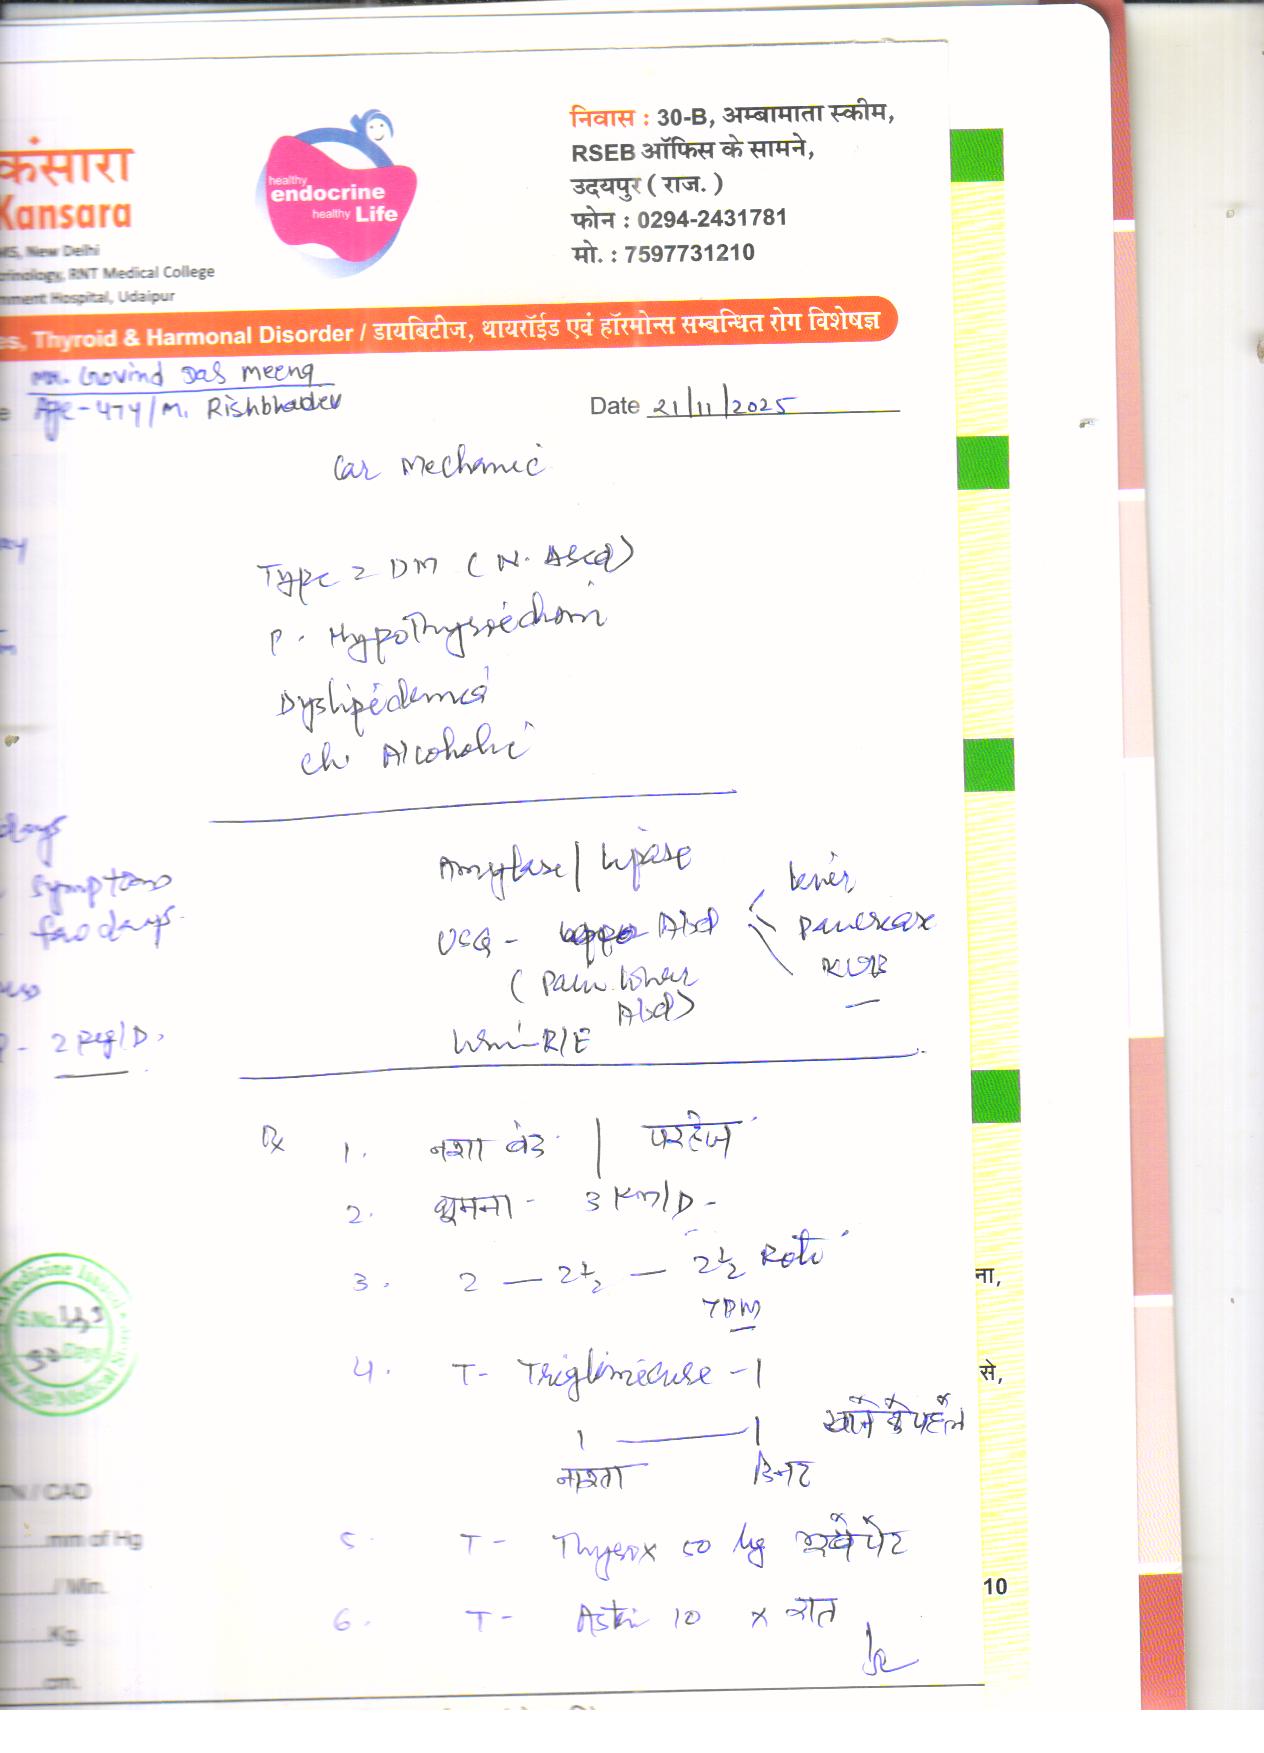 कंसारा
Kansara
MS, New Delhi
crinology, RNT Medical College
nment Hospital, Udaipur
healthy
endocrine
healthy Life
निवास : 30-B, अम्बामाता स्कीम,
RSEB ऑफिस के सामने,
उदयपुर ( राज. )
फोन : 0294-2431781
मो. : 7597731210
es, Thyroid & Harmonal Disorder / डायबिटीज, थायरॉईड एवं हॉरमोन्स सम्बन्धित रोग विशेषज्ञ
Mr. Govind Das Meena
Age-47y/M. Rishbhadev
Date 21/11/2025
Car Mechanic
Type 2 DM (
P. Hypothyroidism
Dyslipidemia
Ch. Alcoholic
days
symptoms
few days
2 peg/D.
Amylase / Lipase
USG - Upper Abd
Liver
Pancreas
KUB
(Pain lower
Abd)
Urine R/E
Rx 1. नशा बंद | परहेज
2. घूमना - 3 Km/D -
3. 2 — 2½ — 2½ Roti
7PM
4. T- Triglimisave - 1
1 — 1 खाने के पहले
नाश्ता डिनर
5. T- Thyrox 50 μg भूखे पेट
6. T- 10 x रात
Medicine Issued
S.No.
30 Days
Medical
ना,
से,
10
TN / CAD
mm of Hg
/ Min.
Kg.
cm.